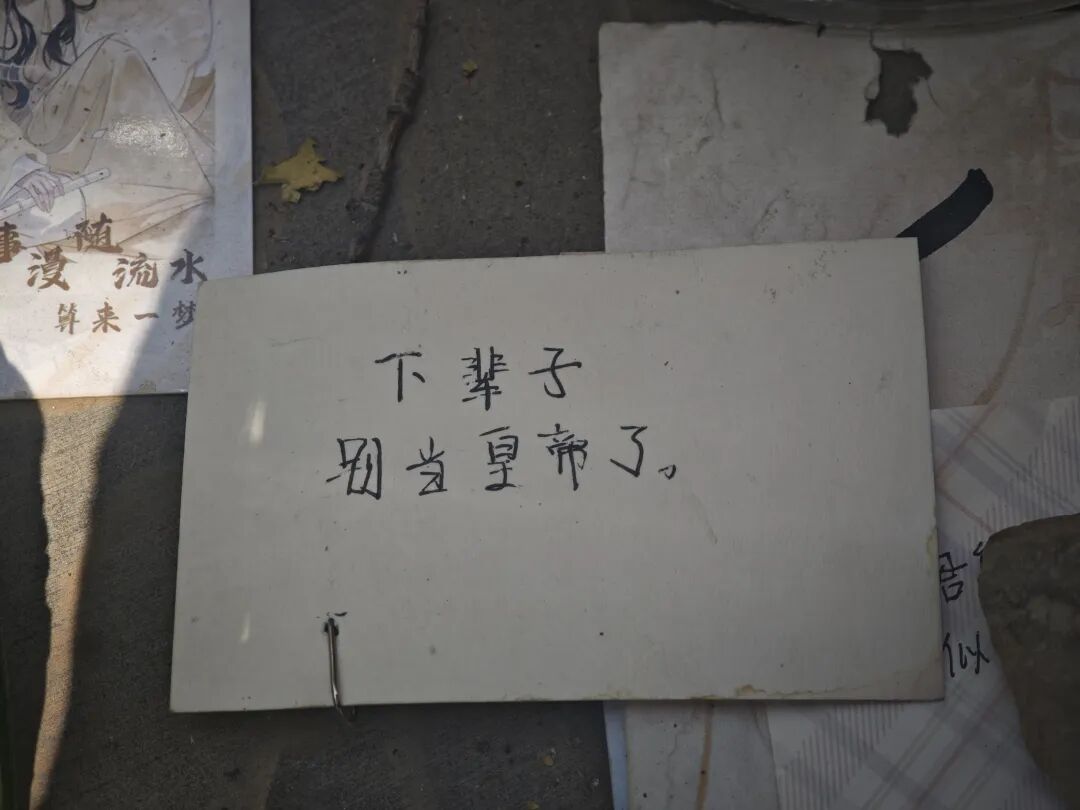 随
漫 流水
算来一梦
下辈子
别当皇帝了。
似